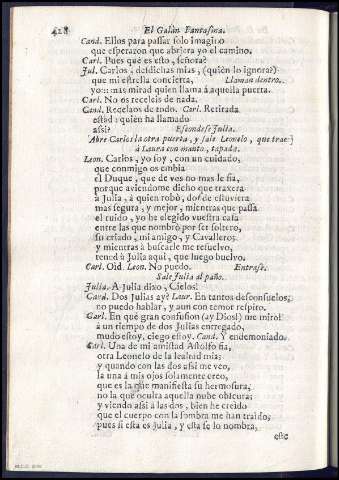 428 El Galàn Fantasma.
Cand. Ellos para passar solo imagino
que esperaron que abriera yo el camino.
Carl. Pues què es esto, señora?
Jul. Carlos, desdichas mias, (quièn lo ignora?)
que mi estrella concierta, Llaman dentro.
yo:: mas mirad quien llama à aquella puerta.
Carl. No os receleis de nada.
Cand. Recelaos de todo. Carl. Retirada
estad: quièn ha llamado
assi? Escondese Julia.
Abre Carlos la otra puerta, y sale Leonelo, que trae
à Laura con manto, tapada.
Leon. Carlos, yo soy, con un cuidado,
que conmigo os embia
el Duque, que de vos no mas le fia,
porque aviendome dicho que traxera
à Julia, à quien robò, donde estuviera
mas segura, y mejor, mientras que passa
el ruido, yo he elegido vuestra casa
entre las que nombrò por ser soltero,
su criado, mi amigo, y Cavallero;
y mientras à buscarle me resuelvo,
tened à Julia aqui, que luego buelvo.
Carl. Oid. Leon. No puedo. Entrase.
Sale Julia al paño.
Julia. A Julia dixo, Cielos!
Cand. Dos Julias ay? Laur. En tantos desconsuelos,
no puedo hablar, y aun con temor respiro.
Carl. En què gran confusion (ay Dios!) me miro!
à un tiempo de dos Julias entregado,
mudo estoy, ciego estoy. Cand. Y endemoniado.
Carl. Una de mi amistad Astolfo fia,
otra Leonelo de la lealtad mia;
y quando con las dos assi me veo,
la una à mis ojos solamente creo,
que es la que manifiesta su hermosura,
no la que oculta aquella nube obscura;
y viendo assi à las dos, bien he creido
que el cuerpo con la sombra me han traido;
pues si esta es Julia, y esta se lo nombra,
este